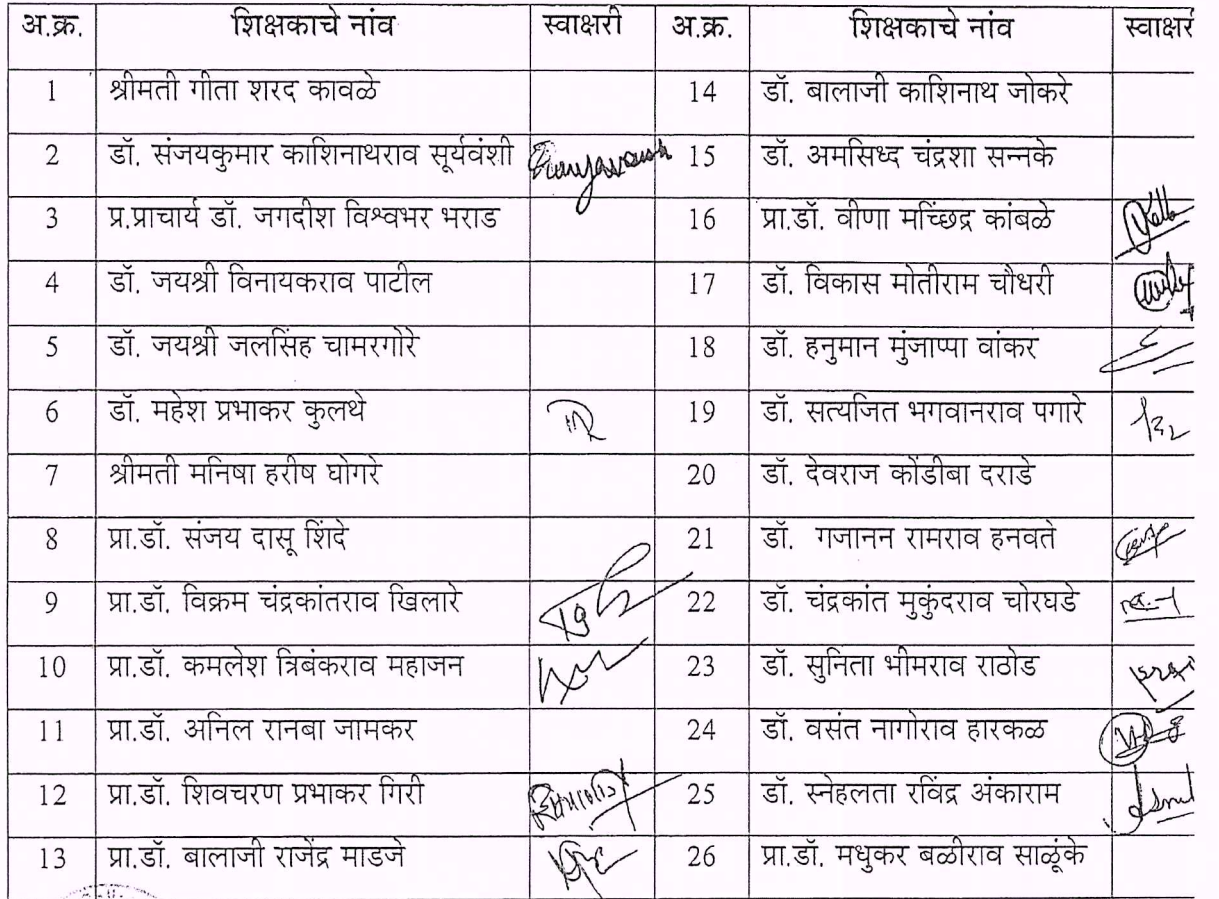 अ.क्र. शिक्षकाचे नांव स्वाक्षरी अ.क्र. शिक्षकाचे नांव
1 श्रीमती गीता शरद कावळे 14 डॉ. बालाजी काशिनाथ जोकरे
2 डॉ. संजयकुमार काशिनाथराव सूर्यवंशी 15 डॉ. अमसिध्द चंद्रशा सन्नके
3 प्र.प्राचार्य डॉ. जगदीश विश्वभर भराड 16 प्रा.डॉ. वीणा मच्छिंद्र कांबळे
4 डॉ. जयश्री विनायकराव पाटील 17 डॉ. विकास मोतीराम चौधरी
5 डॉ. जयश्री जलसिंह चामरगोरे 18 डॉ. हनुमान मुंजाप्पा वांकर
6 डॉ. महेश प्रभाकर कुलथे 19 डॉ. सत्यजित भगवानराव पगारे
7 श्रीमती मनिषा हरीष घोगरे 20 डॉ. देवराज कोंडीबा दराडे
8 प्रा.डॉ. संजय दासू शिंदे 21 डॉ. गजानन रामराव हनवते
9 प्रा.डॉ. विक्रम चंद्रकांतराव खिलारे 22 डॉ. चंद्रकांत मुकुंदराव चोरघडे
10 प्रा.डॉ. कमलेश त्रिबंकराव महाजन 23 डॉ. सुनिता भीमराव राठोड
11 प्रा.डॉ. अनिल रानबा जामकर 24 डॉ. वसंत नागोराव हारकळ
12 प्रा.डॉ. शिवचरण प्रभाकर गिरी 25 डॉ. स्नेहलता रविंद्र अंकाराम
13 प्रा.डॉ. बालाजी राजेंद्र माडजे 26 प्रा.डॉ. मधुकर बळीराव साळूंके